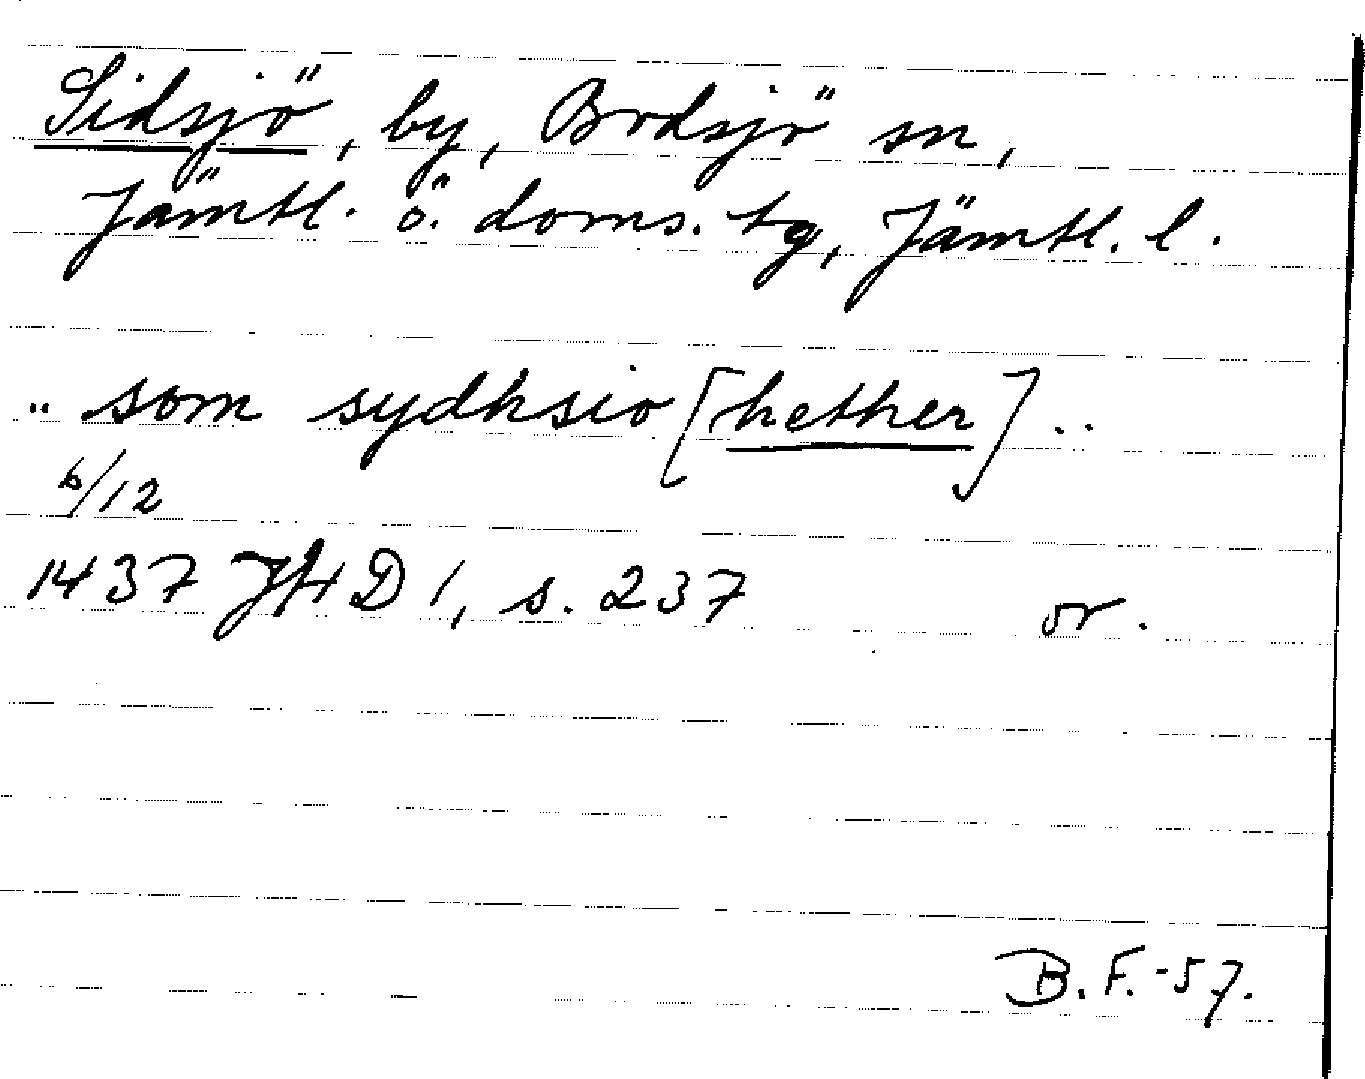 Sidsjö, by, Bodsjö sn,
Jämtl. ö. doms. tg, Jämtl. l.
.. som sydhsio [hether] ..
6/12
1437 JHD 1, s. 237 or.
B.F. -57.